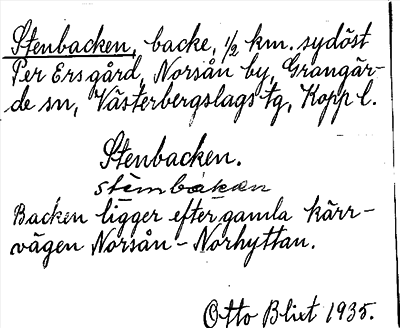 Stenbacken, backe, 1/2 km. sydöst
Per Ersgård, Norsån by, Grangär-
de sn, Västerbergslags tg, Kopp l.
Stenbacken.
stèmbakan
Backen ligger efter gamla kärr-
vägen Norsån - Norhyttan.
Otto Blixt 1935.